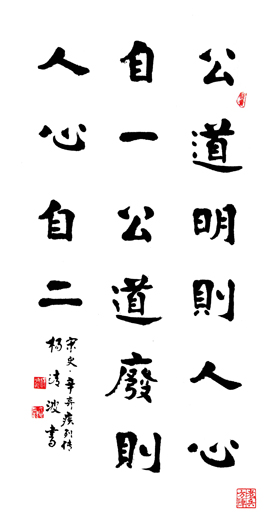 公道明則人心
自一公道廢則
人心自二
宋史·辛弃疾列传
楊清波書